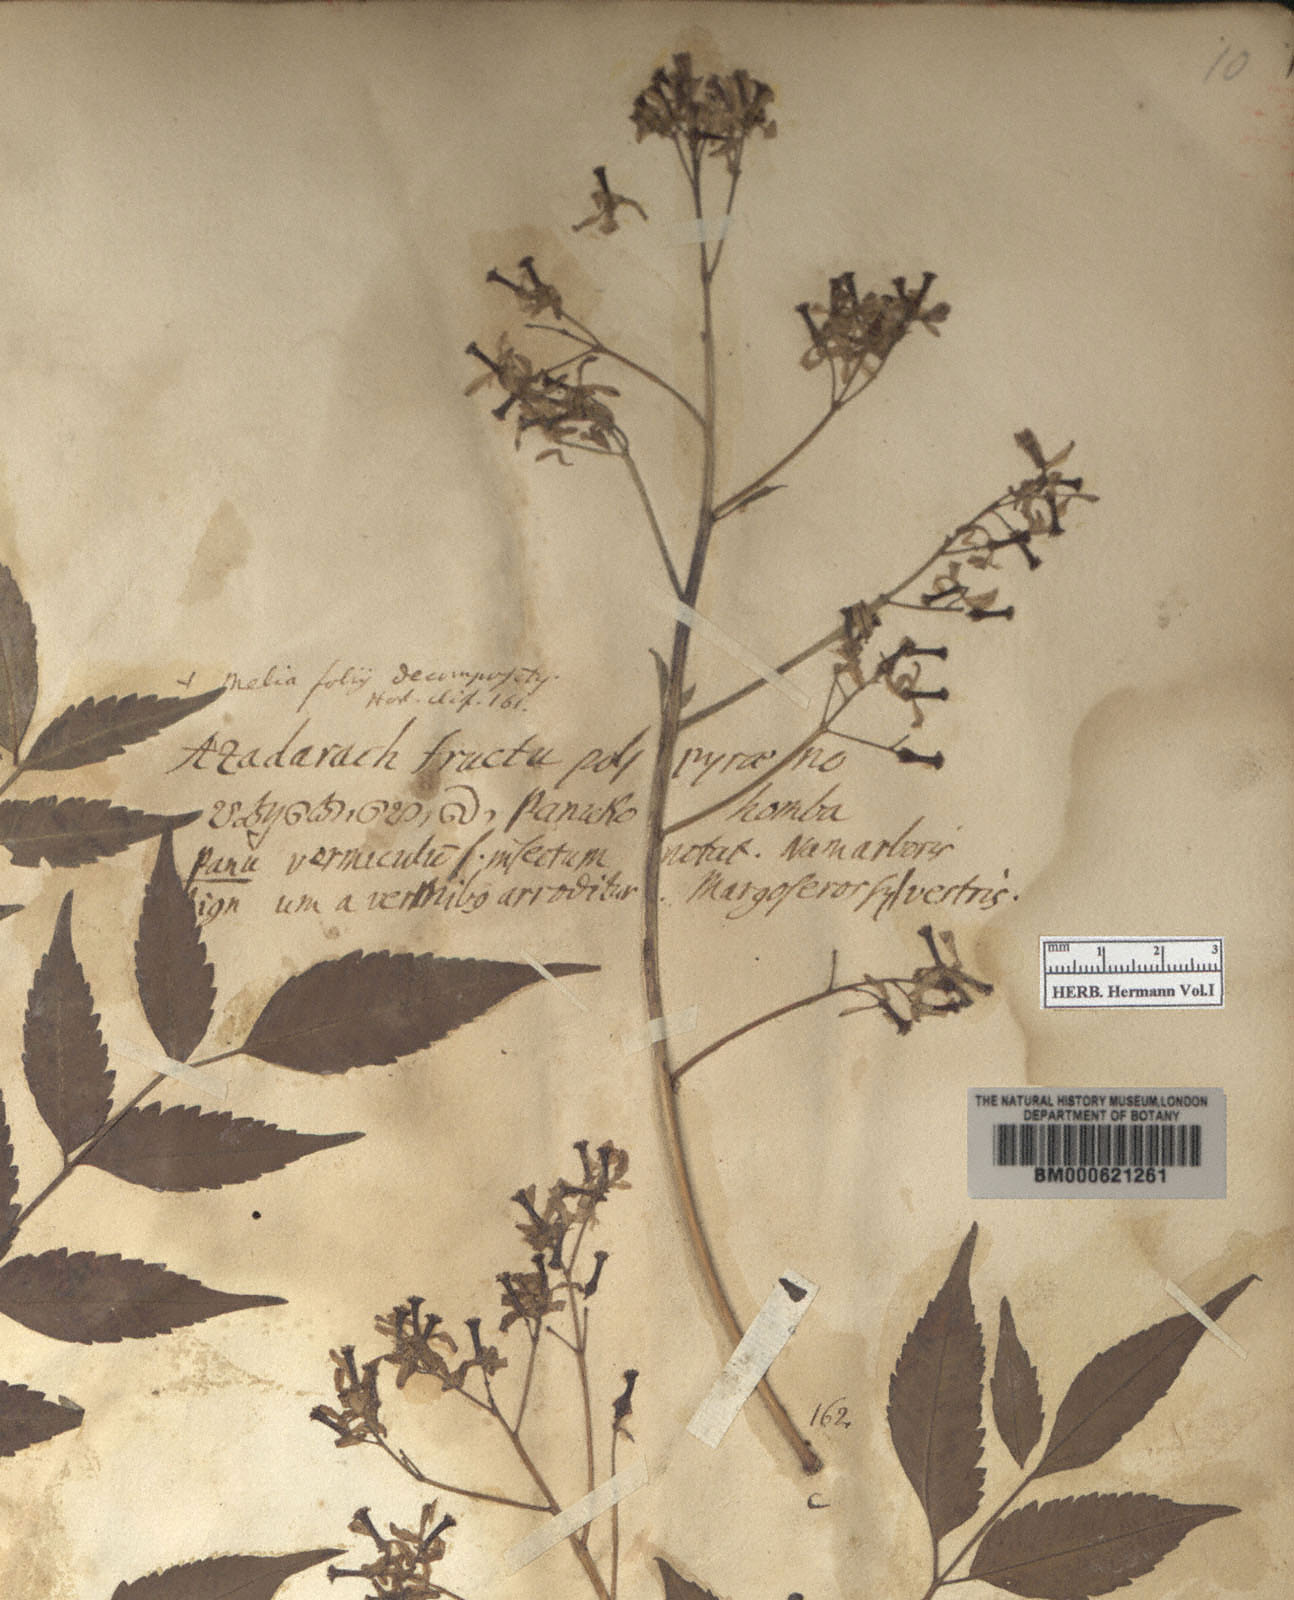 10
+ Melia folijs decompositis.
Hort. clif. 161.
Azadarach fructu poly pyræ no
Panuko homba
Panu vermiculū s. insectum notat. Nam arboris
lign um a vermibus arroditur. Margoseros sylvestris.
mm 1 2 3
HERB. Hermann Vol.I
THE NATURAL HISTORY MUSEUM,LONDON
DEPARTMENT OF BOTANY
BM000621261
162.
c